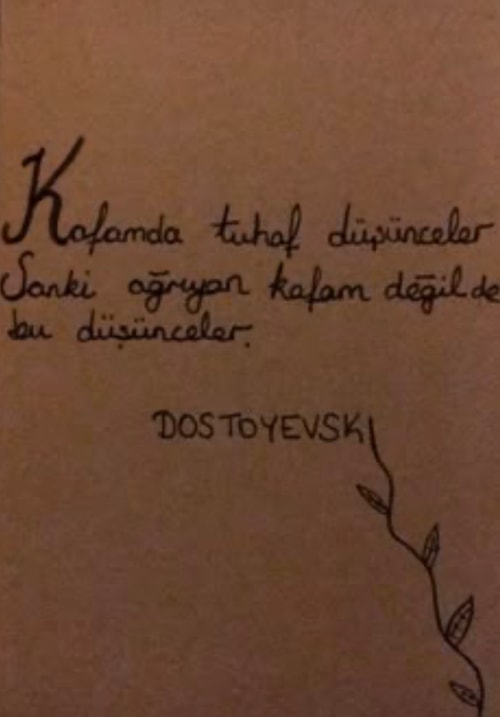 Kafamda tuhaf düşünceler
Sanki ağrıyan kafam değil de
bu düşünceler.
DOSTOYEVSKİ